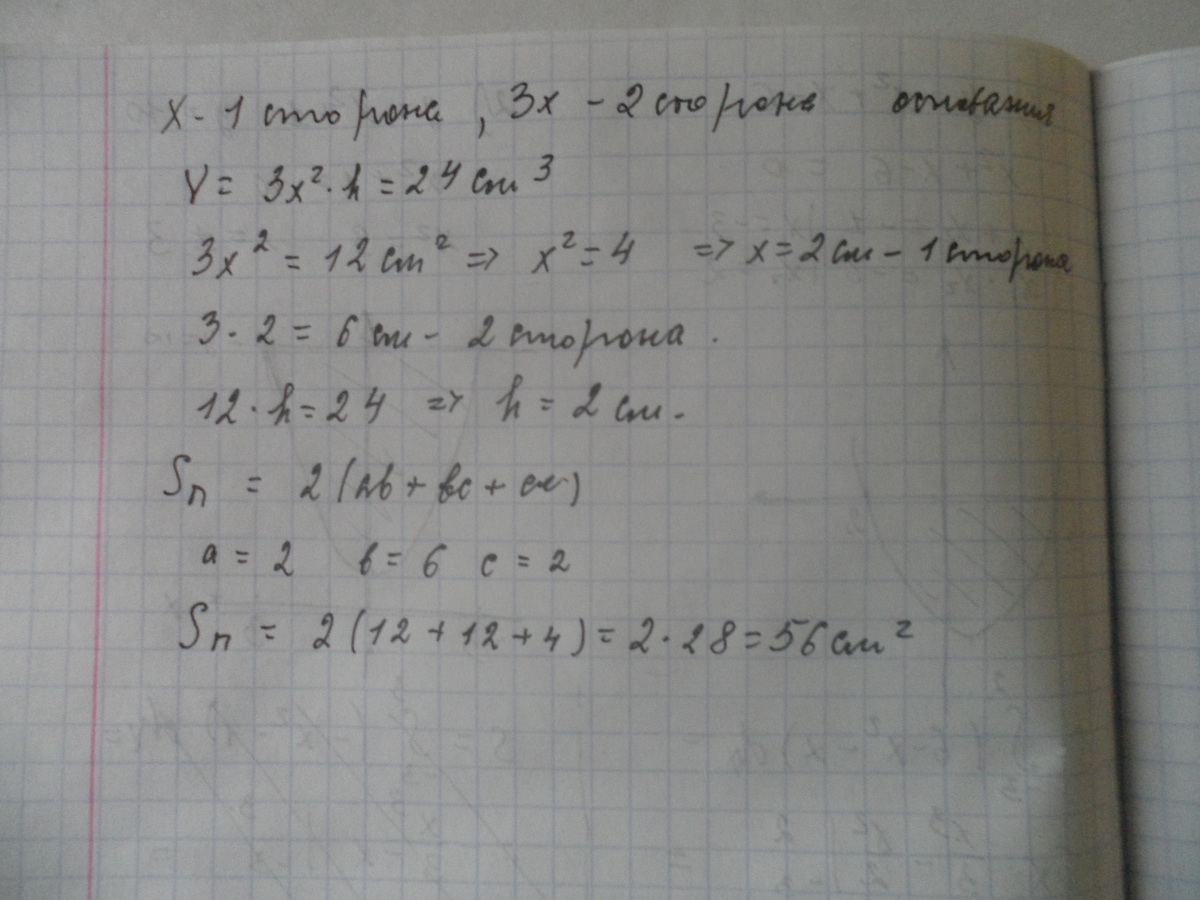 x - 1 сторона, 3x - 2 сторона основания
V = 3x² · h = 24 см³
3x² = 12 см² => x² = 4 => x = 2 см - 1 сторона
3 · 2 = 6 см - 2 сторона.
12 · h = 24 => h = 2 см.
Sп = 2(ab + bc + ca)
a = 2 b = 6 c = 2
Sп = 2(12 + 12 + 4) = 2 · 28 = 56 см²